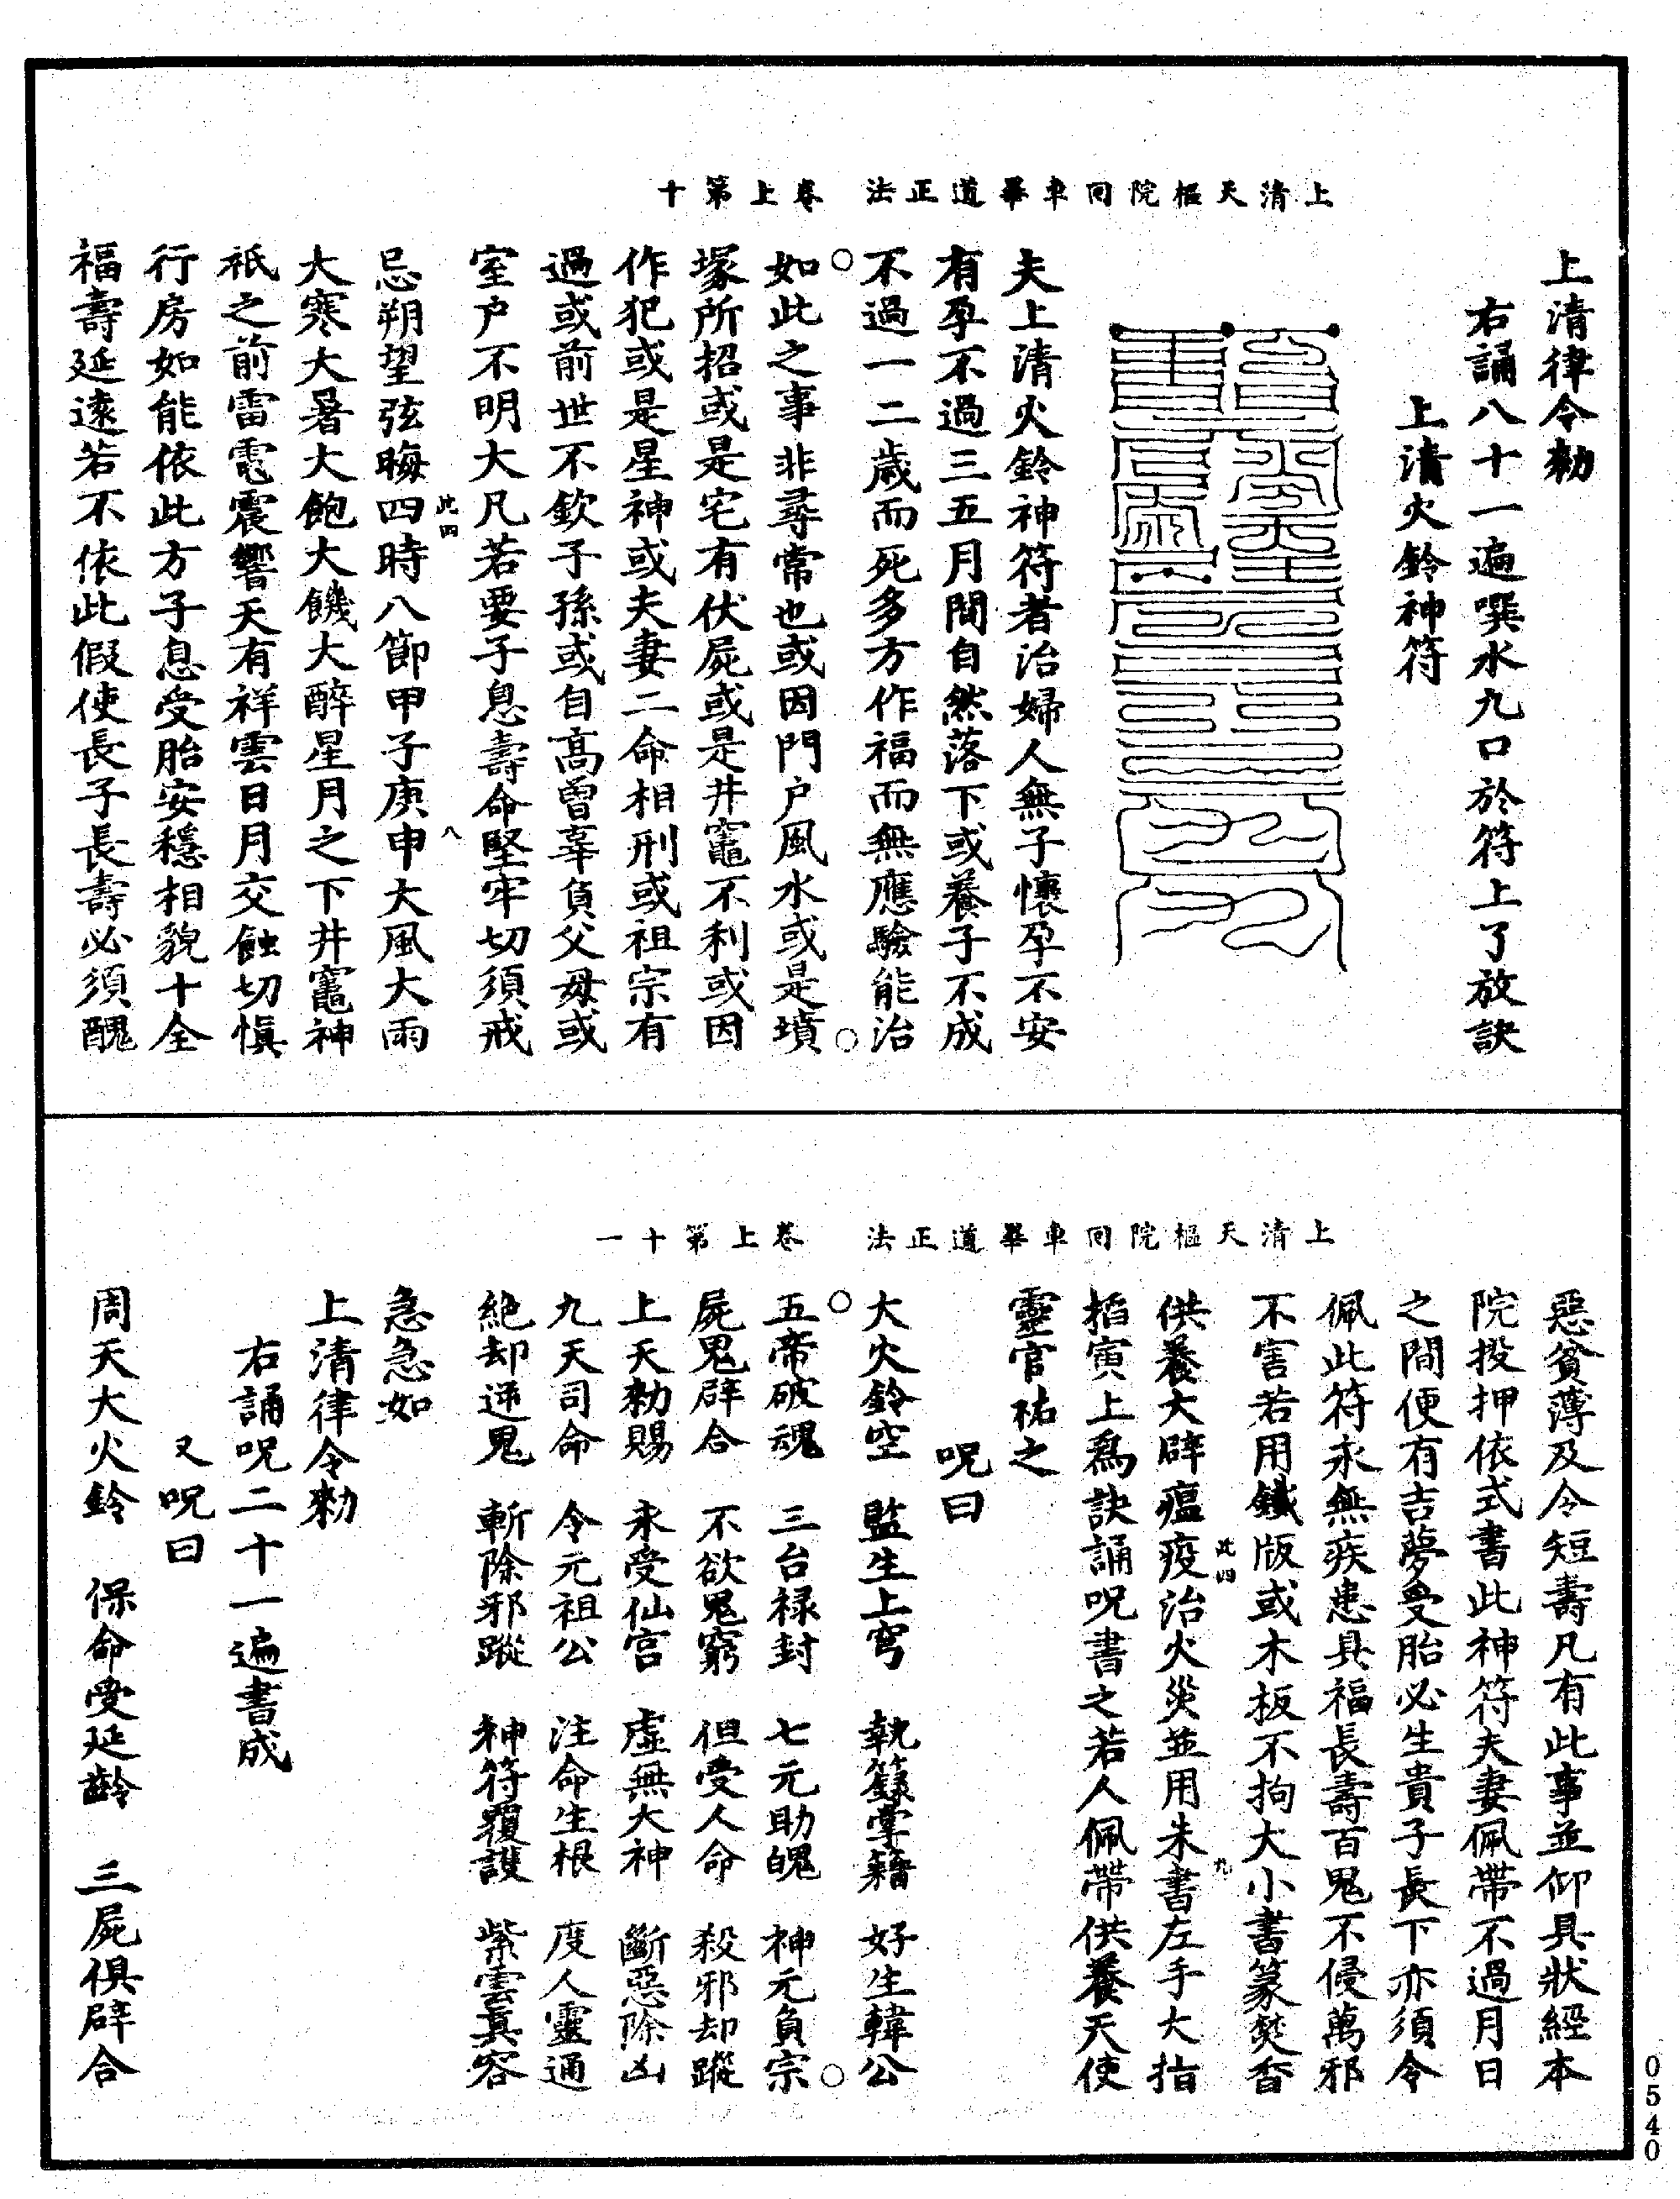 上清天樞院回車畢道正法　卷上第十
上清律令勑
右誦八十一遍噀水九口於符上了放訣
上清火鈴神符
夫上清火鈴神符者治婦人無子懷孕不安
有孕不過三五月間自然落下或養子不成
不過一二歲而死多方作福而無應驗能治
如此之事非尋常也或因門户風水或是墳
塚所招或是宅有伏屍或是井竈不利或因
作犯或是星神或夫妻二命相刑或祖宗有
過或前世不欽子孫或自高曾辜負父母或
室户不明大凡若要子息壽命堅牢切須戒
此四
八
忌朔望弦晦四時八節甲子庚申大風大雨
大寒大暑大飽大饑大醉星月之下井竈神
祇之前雷電震響天有祥雲日月交蝕切慎
行房如能依此方子息受胎安穩相貌十全
福壽延遠若不依此假使長子長壽必須醜
上清天樞院回車畢道正法　卷上第十一
惡貧薄及令短壽凡有此事並仰具狀經本
院投押依式書此神符夫妻佩帶不過月日
之間便有吉夢受胎必生貴子長下亦須令
佩此符永無疾患具福長壽百鬼不侵萬邪
不害若用鐵版或木板不拘大小書篆焚香
此四
九
供養大辟瘟疫治火災並用朱書左手大指
掐寅上爲訣誦呪書之若人佩帶供養天使
靈官祐之
呪曰
大火鈴空　監生上穹　執籙掌籍　好生韓公
五帝破魂　三台禄封　七元助魄　神元負宗
屍鬼辟合　不欲鬼窮　但受人命　殺邪却蹤
上天勑賜　永受仙宫　虛無大神　斷惡除凶
九天司命　令元祖公　注命生根　度人靈通
絶却逓鬼　斬除邪蹤　神符覆護　紫雲真容
急急如
上清律令勑
右誦呪二十一遍書成
又呪曰
周天大火鈴　保命受延齡　三屍俱辟合
0540